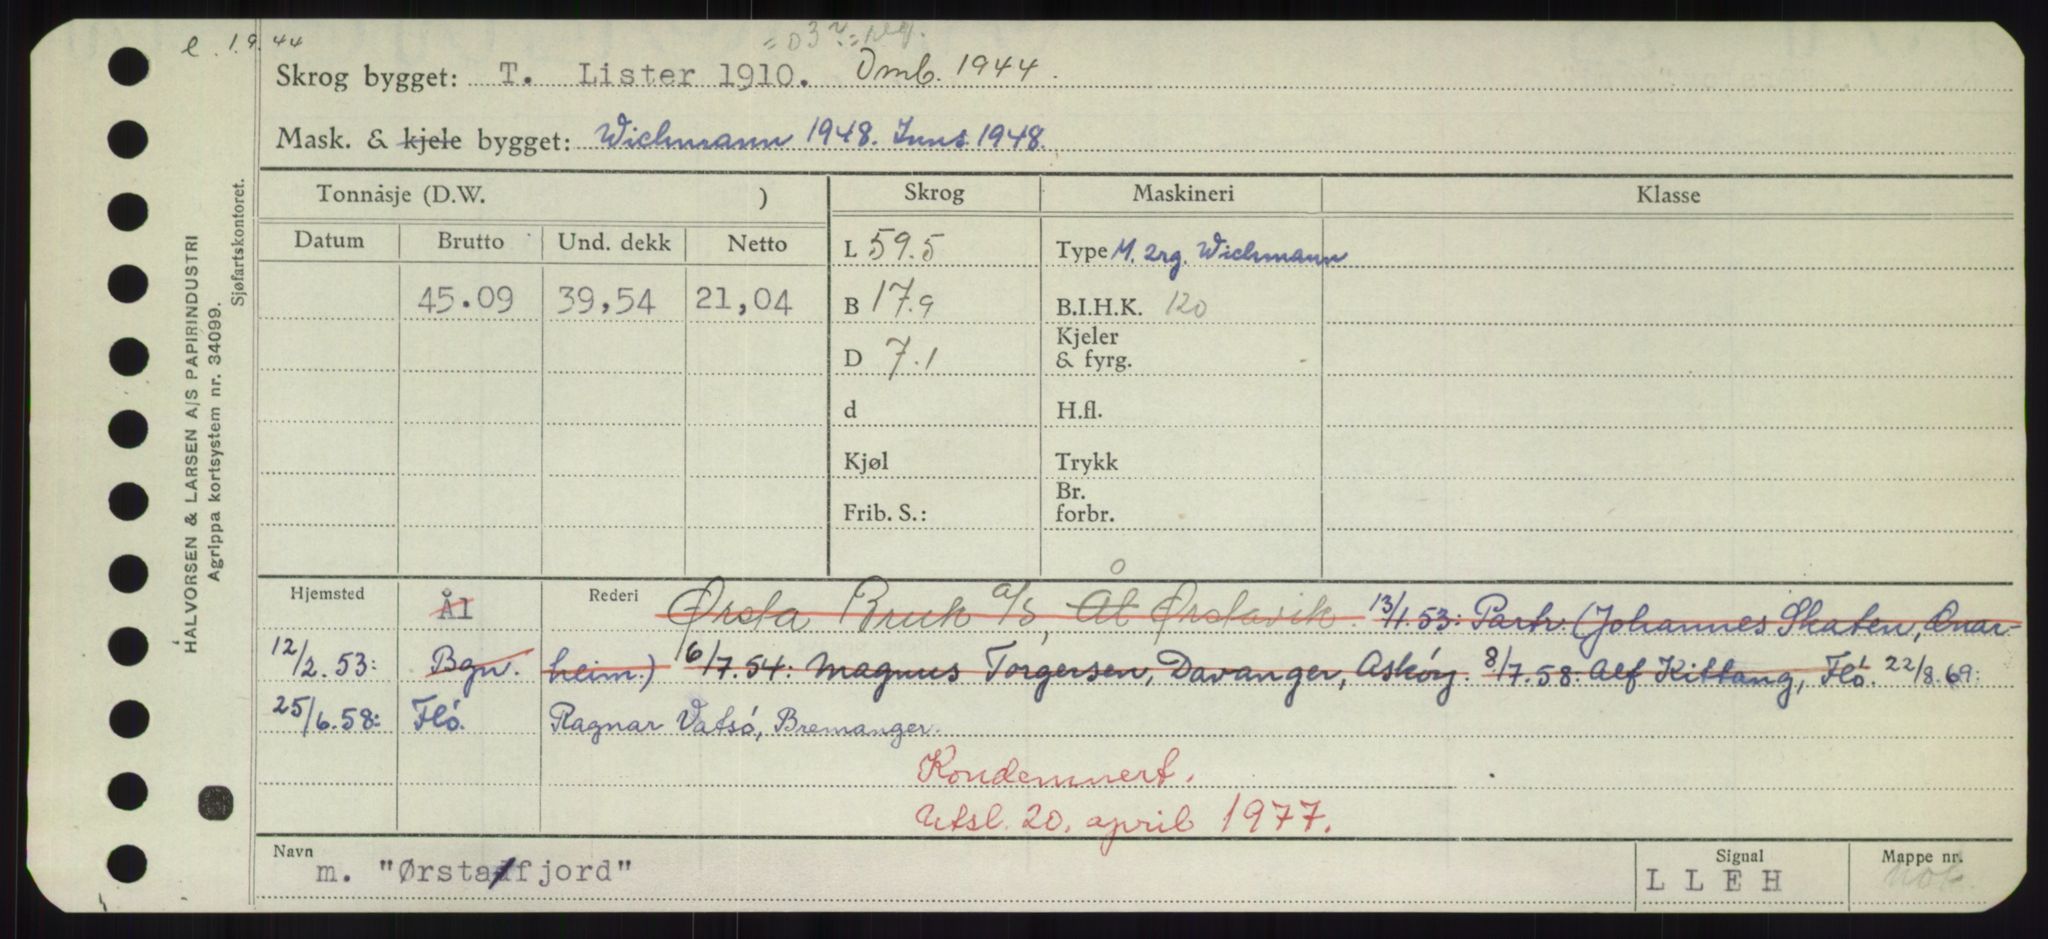 e. 1.9.44
Skrog bygget: T. Lister 1910. Omb. 1944.
Mask. & kjele bygget: Wichmann 1948. Inns. 1948.
Tonnåsje (D.W. ) Skrog Maskineri Klasse
Datum Brutto Und. dekk Netto L 59.5 Type M. 2rg. Wichmann
45.09 39,54 21,04 B 17.9 B.I.H.K. 120
D 7.1 Kjeler & fyrg.
d H.fl.
Kjøl Trykk
Frib. S.: Br. forbr.
Hjemsted Ål Rederi Ørsta Bruk a/s, Ål Ørstavik. 13/1.53: Partr. (Johannes Skaten, Onar-
12/2.53: Bgn. heim.) 16/7.54: Magnus Torgersen, Davanger, Askøy. 8/7.58: Alf Kittang, Flø. 22/8.69:
25/6.58: Flø. Ragnar Vatsø, Bremanger.
Kondemnert.
Utsl. 20. april 1977.
Navn m. "Ørstafjord" Signal LLEH Mappe nr.
HALVORSEN & LARSEN A/S PAPIRINDUSTRI
Agrippa kortsystem nr. 34099.
Sjøfartskontoret.